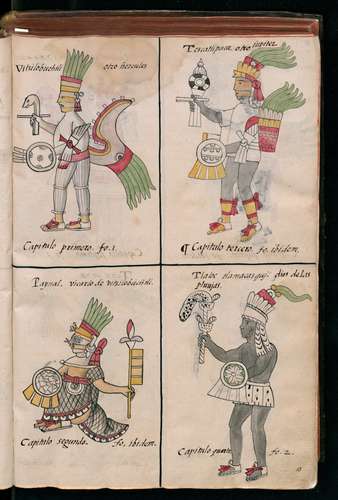 Vitzilobuchtli otro hercules
Capitulo primero. fo. 1.
Tezcatlipuca otro jupiter
¶ Capitulo tercero. fo. ibidem.
Paynal. vicario de vitzilobuchtli.
Capitulo segundo. fo. ibidem.
Tlaloc tlamacazqui. dios de las
pluuias.
Capitulo quarto. fo. 2.